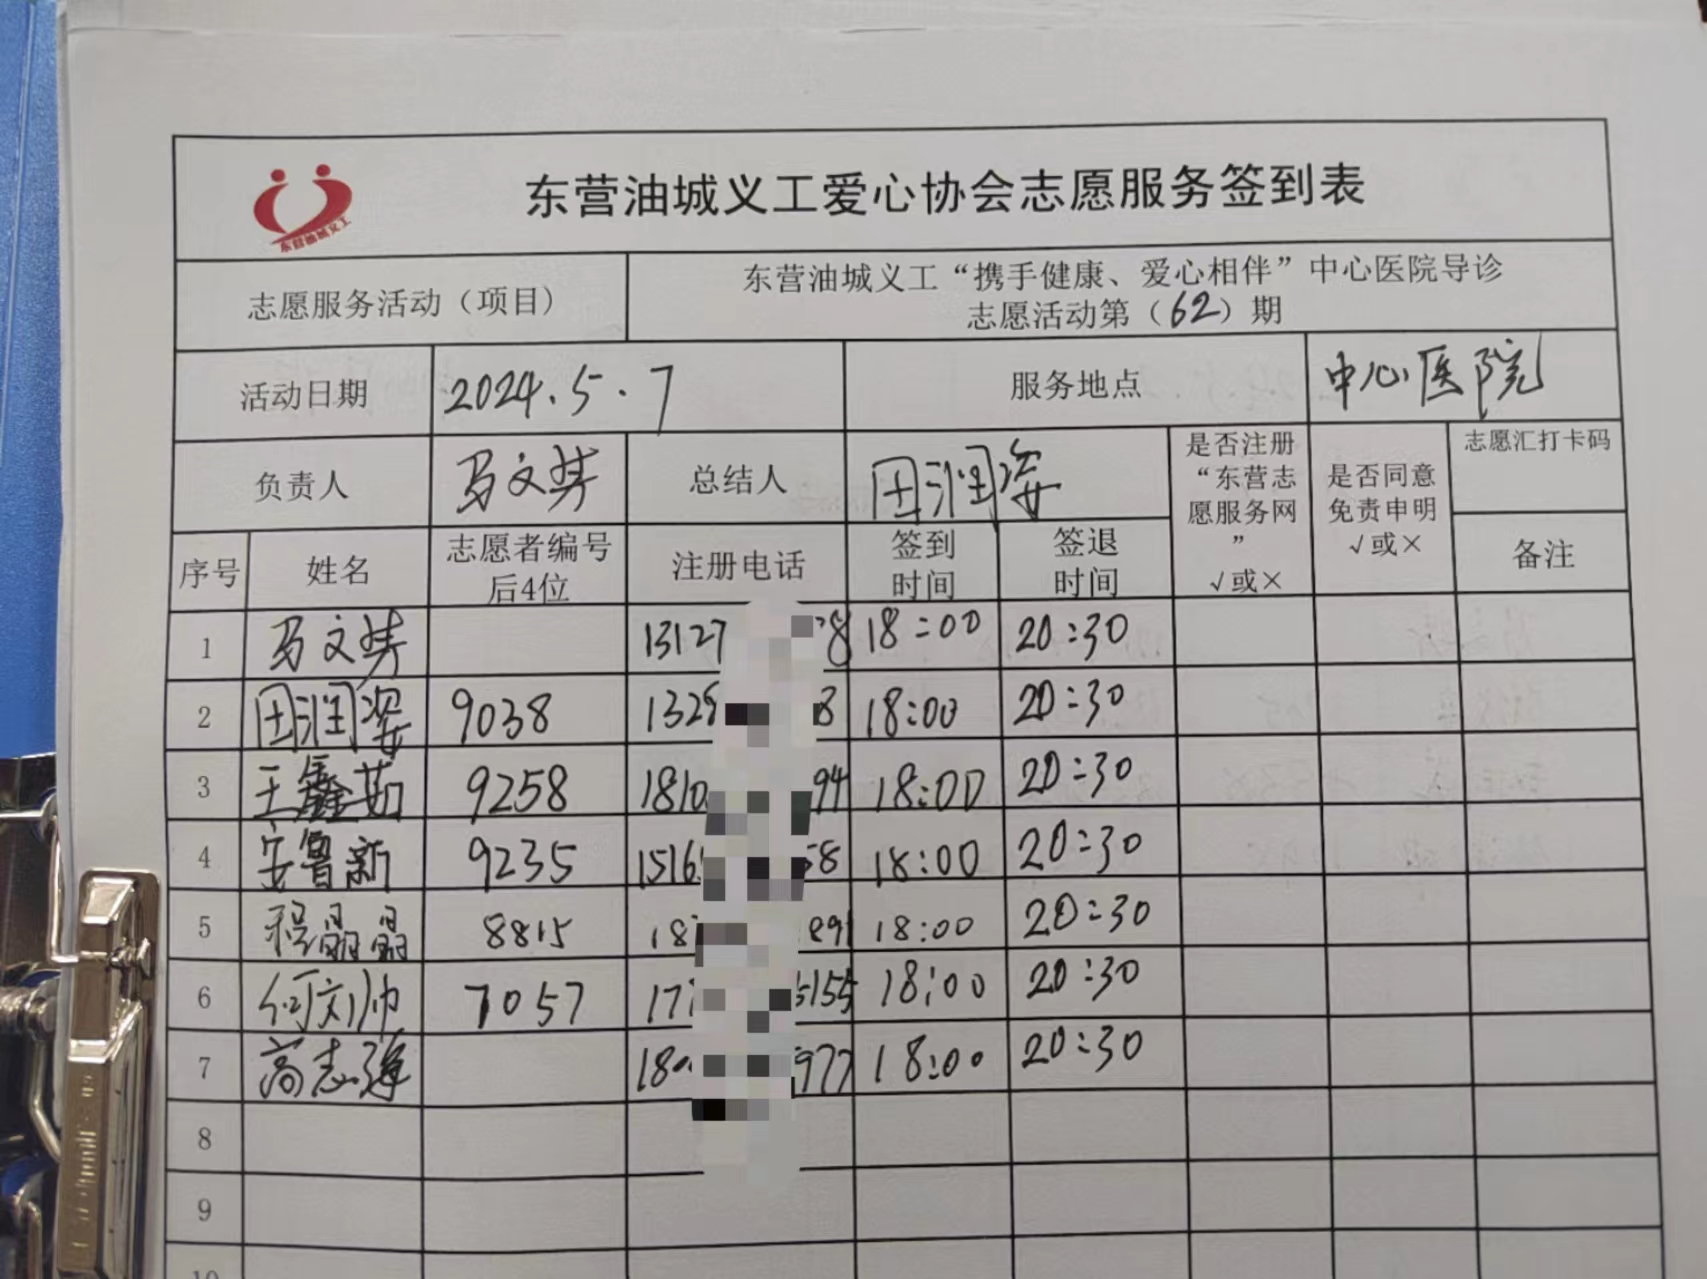 东营油城义工
东营油城义工爱心协会志愿服务签到表
志愿服务活动（项目）
东营油城义工“携手健康、爱心相伴”中心医院导诊
志愿活动第（62）期
活动日期 2024.5.7 服务地点 中心医院
负责人 马文婷 总结人 田润姿
是否注册
“东营志
愿服务网
”
√或×
是否同意
免责申明
√或×
志愿汇打卡码
备注
序号 姓名
志愿者编号
后4位
注册电话
签到
时间
签退
时间
1 马文 13127 8 18:00 20:30
2 田润姿 9038 132 8 18:00 20:30
3 王鑫茹 9258 1810 94 18:00 20:30
4 安鲁新 9235 1516 58 18:00 20:30
5 程晶晶 8815 18 891 18:00 20:30
6 何刘帅 7057 17 5155 18:00 20:30
7 高志强 180 977 18:00 20:30
8
9
10